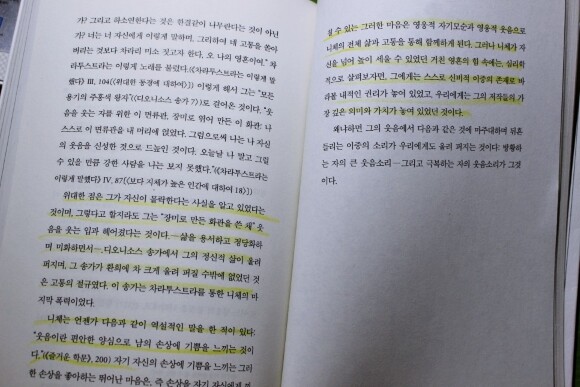 가? 그리고 하소연한다는 것은 한결같이 나무란다는 것이 아닌
가? 너는 너 자신에게 이렇게 말하며, 그리하여 네 고통을 쏟아
버리는 것보다 차라리 미소 짓고자 한다. 오 나의 영혼이여." 차
라투스트라는 이렇게 노래를 불렀다.(《차라투스트라는 이렇게 말
했다》 III, 104(〈위대한 동경에 대하여〉)) 이렇게 해서 그는 "모든
용기의 주홍색 왕자"(〈디오니소스 송가 7〉)로 걸어온 것이다. "웃
음을 웃는 자를 위한 이 면류관, 장미로 엮어 만든 이 화관: 나
스스로 이 면류관을 내 머리에 얹었다. 그럼으로써 나는 나 자신
의 웃음을 신성한 것으로 드높인 것이다. 오늘날 나 말고 그럴
수 있을 만큼 강한 사람을 나는 보지 못했다."(《차라투스트라는
이렇게 말했다》 IV, 87(〈보다 지체가 높은 인간에 대하여 18〉))
위대한 점은 그가 자신이 몰락한다는 사실을 알고 있었다는
것이며, 그렇다고 할지라도 그는 "장미로 만든 화관을 쓴 채" 웃
음을 웃는 입과 헤어졌다는 것이다.—삶을 용서하고 정당화하
며 미화하면서—. 디오니소스 송가에서 그의 정신적 삶이 울려
퍼지며, 그 송가가 환희에 차 크게 울려 퍼질 수밖에 없었던 것
은 고통의 절규였다. 이 송가는 차라투스트라를 통한 니체의 마
지막 폭력이었다.
니체는 언젠가 다음과 같이 역설적인 말을 한 적이 있다:
"웃음이란 편안한 양심으로 남의 손상에 기쁨을 느끼는 것이
다."(《즐거운 학문》, 200) 자기 자신의 손상에 기쁨을 느끼는 그러
한 손상을 좋아하는 뛰어난 마음은, 즉 손상을 자기 자신에게
할 수 있는 그러한 마음은 영웅적 자기모순과 영웅적 웃음으로
니체의 전체 삶과 고통을 통해 함께하게 된다. 그러나 니체가 자
신을 넘어 높이 세울 수 있었던 거친 영혼의 힘 속에는, 심리학
적으로 살펴보자면, 그에게는 스스로 신비적 이중의 존재로 바
라볼 내적인 권리가 놓여 있었고, 우리에게는 그의 저작들의 가
장 깊은 의미와 가치가 놓여 있었던 것이다.
왜냐하면 그의 웃음에서 다음과 같은 것에 마주대하며 뒤흔
들리는 이중의 소리가 우리에게도 울려 퍼지는 것이다: 방황하
는 자의 큰 웃음소리—그리고 극복하는 자의 웃음소리가 그것
이다.